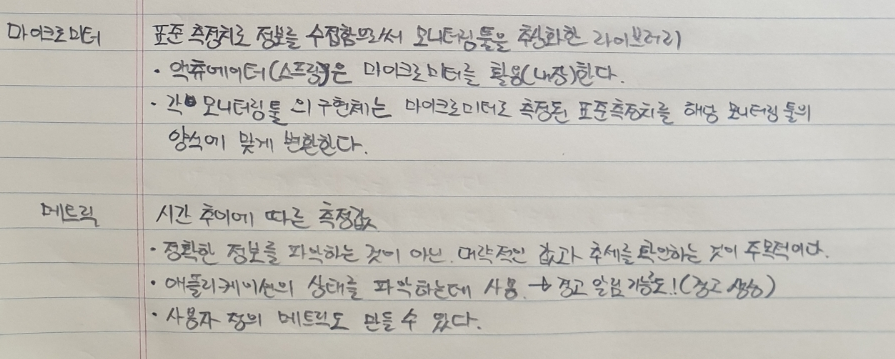 마이크로미터 표준 측정치로 정보를 수집함으로써 모니터링 툴을 추상화한 라이브러리
· 액츄에이터(스프링)은 마이크로미터를 활용(내장)한다.
· 각 모니터링 툴의 구현체는 마이크로미터로 측정된 표준측정치를 해당 모니터링 툴의
양식에 맞게 변환한다.
메트릭 시간 추이에 따른 측정값
· 정확한 정보를 파악하는 것이 아닌 대략적인 값과 추세를 확인하는 것이 주목적이다.
· 애플리케이션의 상태를 파악하는데 사용 → 경고 알림 기능도! (경고
· 사용자 정의 메트릭도 만들 수 있다.